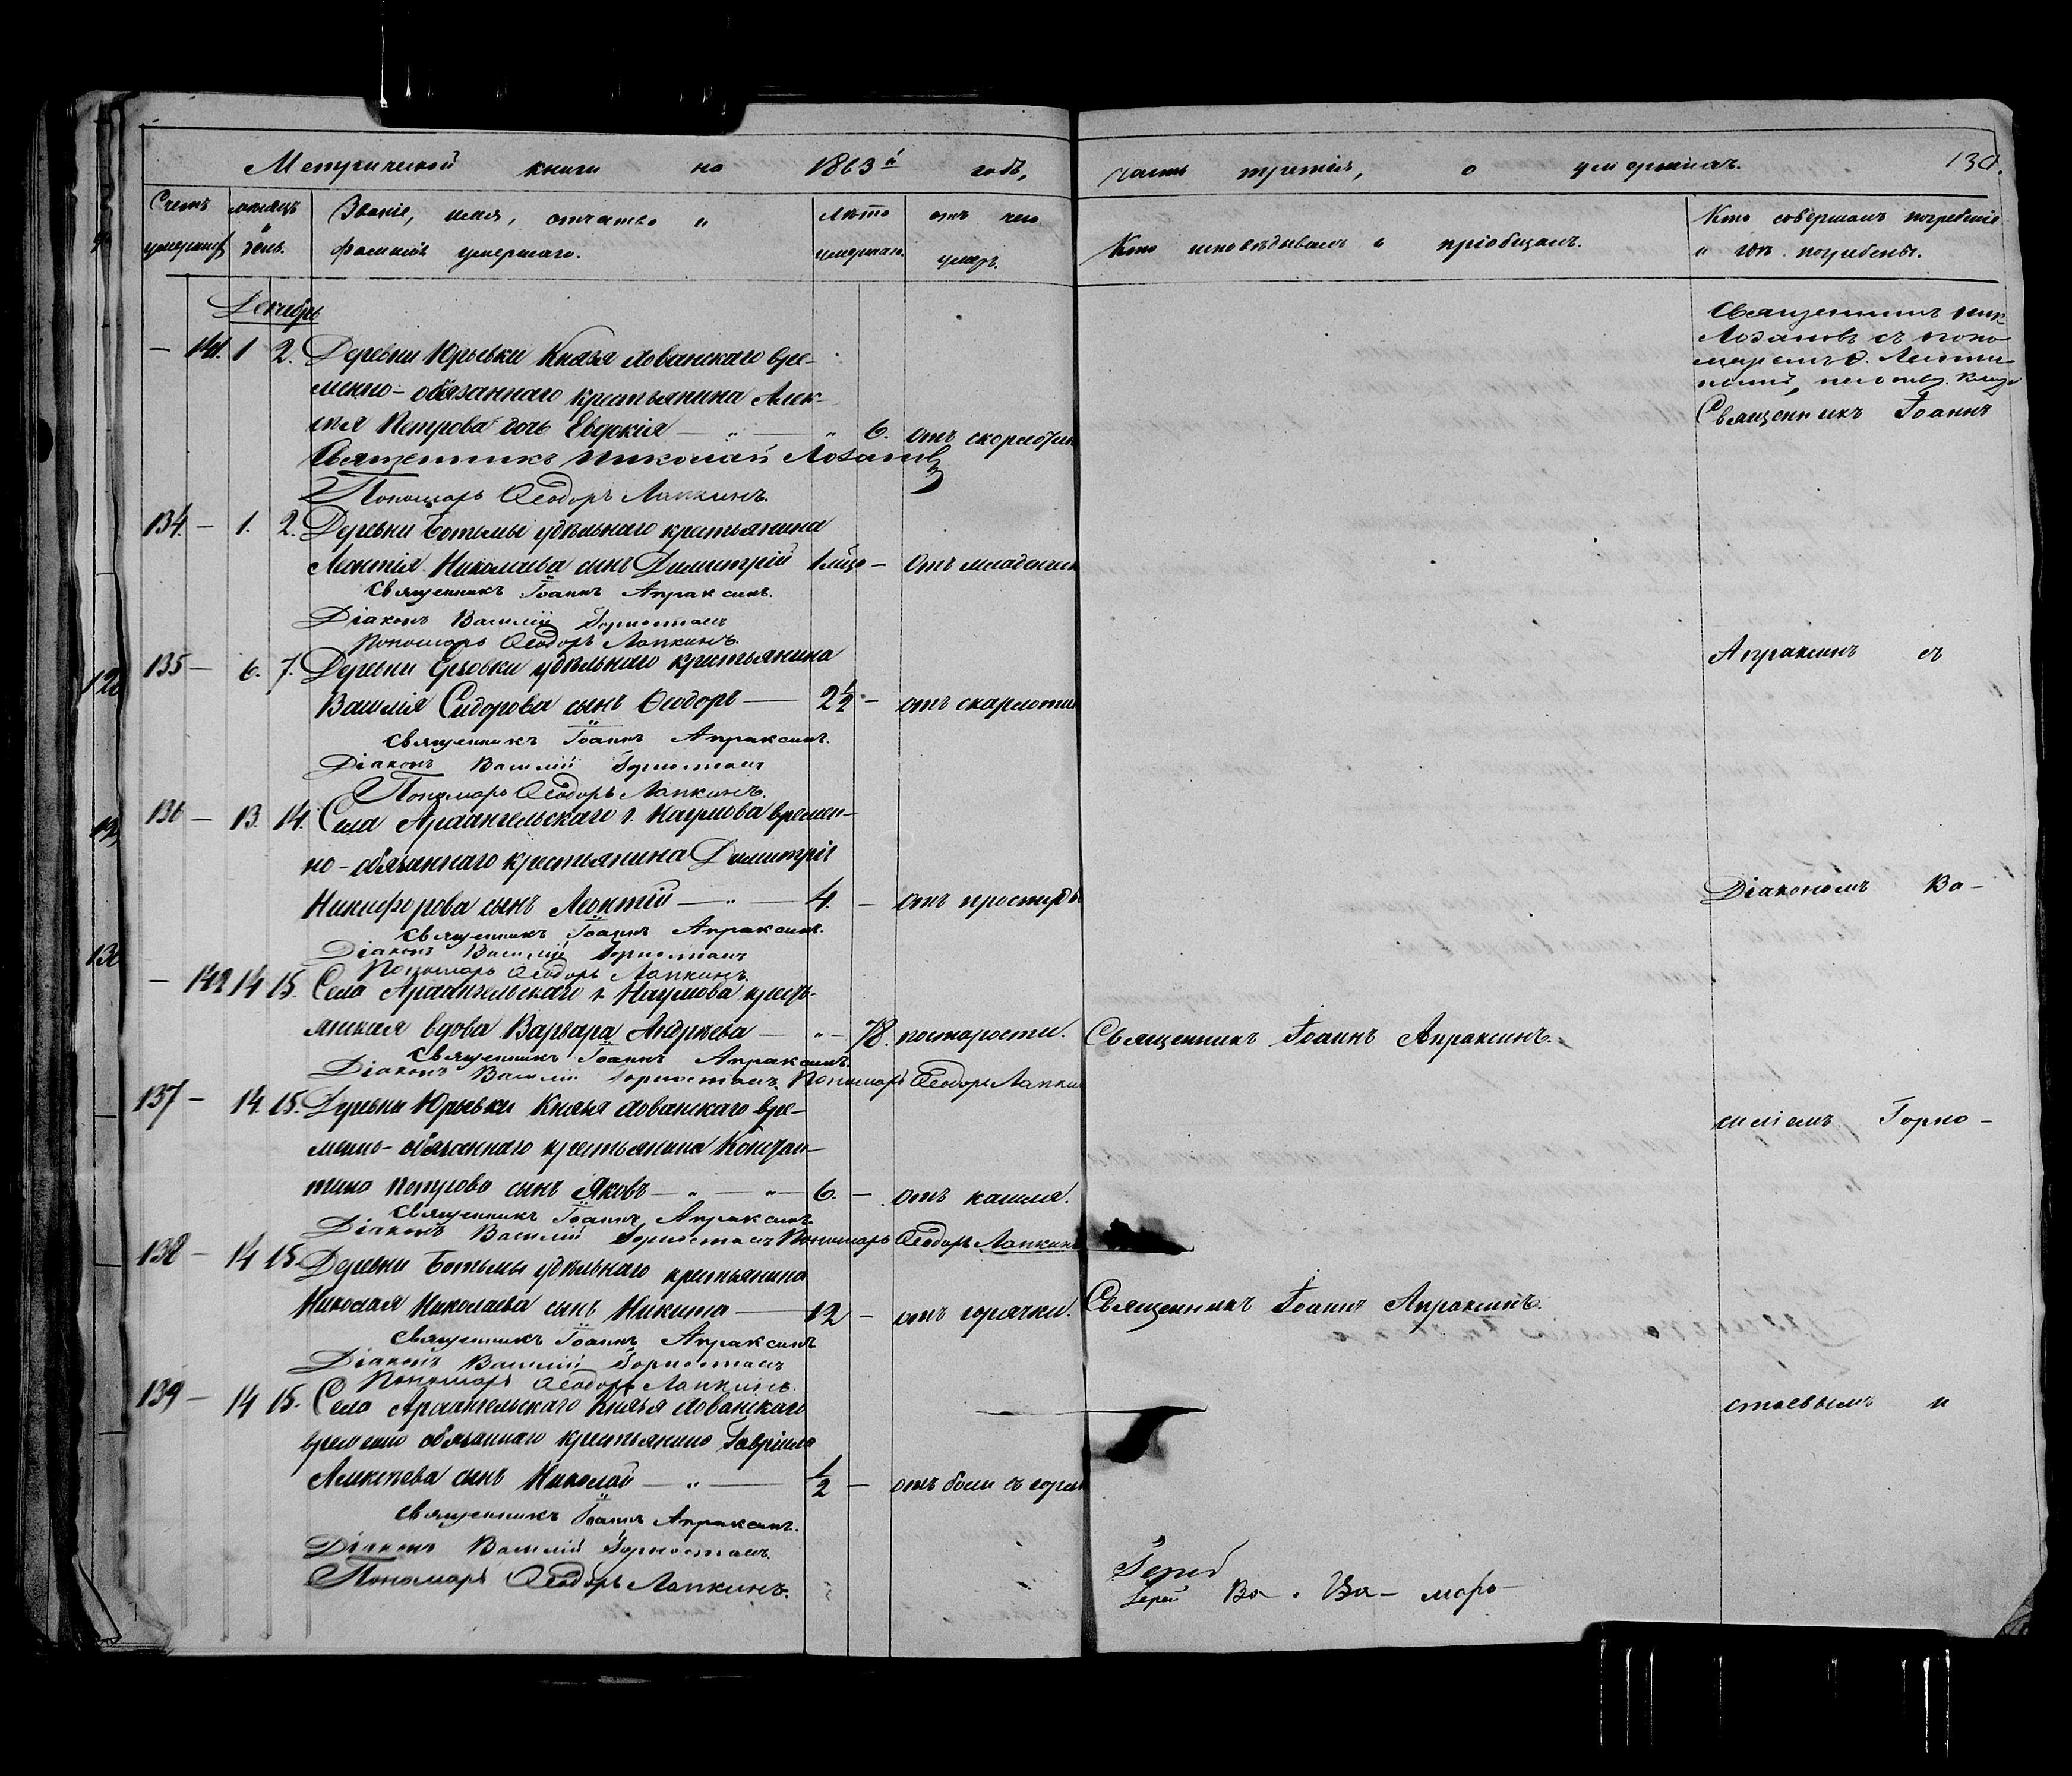 Метрической книги на 1863й годъ, часть третія, о умершихъ. 130.
Счетъ умершихъ
мѣсяцъ и день.
Званіе, имя, отчество и фамилія умершаго.
Лѣто умершаго.
отъ чего умеръ.
Кто исповѣдывалъ и пріобщалъ.
Кто совершалъ погребеніе и гдѣ погребены.
Декабрь
— 141. 1 2. Деревни Юрьевки Князя Хованскаго вре-
менно-обязаннаго крестьянина Алек-
сѣя Петрова дочь Евдокія — „ — „ 6. отъ скорлотин
Священникъ Николай Лозановъ
Пономарь Ѳеодоръ Лапкинъ.
Священникъ Ник.
Лозановъ съ поно-
маремъ Ѳ.
Священникъ Іоаннъ
134. — 1. 2. Деревни Ботьмы удѣльнаго крестьянина
Леонтія Николаева сынъ Димитрій 1 мѣс — отъ младенческ
Священникъ Іоаннъ Апраксинъ.
Діаконъ Василій Горностаевъ
Пономарь Ѳеодоръ Лапкинъ.
135 — 6. 7. Деревни удѣльнаго крестьянина
Василія Сидорова сынъ Ѳеодоръ — 2½ — отъ скарлотин
Священникъ Іоаннъ Апраксинъ.
Діаконъ Василій Горностаевъ
Пономарь Ѳеодоръ Лапкинъ.
Апраксинъ съ
136 — 13. 14. Села Архангельскаго г. Наумова времен-
но-обязаннаго крестьянина Димитрія
Никифорова сынъ Леонтій — „ — 4. — отъ простуды
Священникъ Іоаннъ Апраксинъ.
Діаконъ Василій Горностаевъ
Пономарь Ѳеодоръ Лапкинъ.
Діакономъ Ва-
— 142 14 15. Села Архангельскаго г. Наумова кресть-
янская вдова Варвара Андреева — „ — 78. по старости. Священникъ Іоаннъ Апраксинъ.
Священникъ Іоаннъ Апраксинъ.
Діаконъ Василій Горностаевъ. Пономарь Ѳеодоръ Лапкин
137 — 14. 15. Деревни Юрьевки Князя Хованскаго вре-
менно-обязаннаго крестьянина Констан-
тина Петрова сынъ Яковъ — „ — „ — 6. — отъ кашля.
Священникъ Іоаннъ Апраксинъ
Діаконъ Василій Горностаевъ Пономарь Ѳеодоръ Лапкинъ
силіемъ Горно-
138 — 14 15. Деревни Ботьмы удѣльнаго крестьянина
Николая Николаева сынъ Никита — 12 — отъ горячки. Священникъ Іоаннъ Апраксинъ.
Священникъ Іоаннъ Апраксинъ
Діаконъ Василій Горностаевъ
Пономарь Ѳеодоръ Лапкинъ.
139 — 14 15. Села Архангельскаго Князя Хованскаго
временно обязаннаго крестьянина Гавріила
Алексѣева сынъ Николай — „ — ½ — отъ боли въ горлѣ
Священникъ Іоаннъ Апраксинъ.
Діаконъ Василій Горностаевъ.
Пономарь Ѳеодоръ Лапкинъ.
стаевымъ и
Іерей